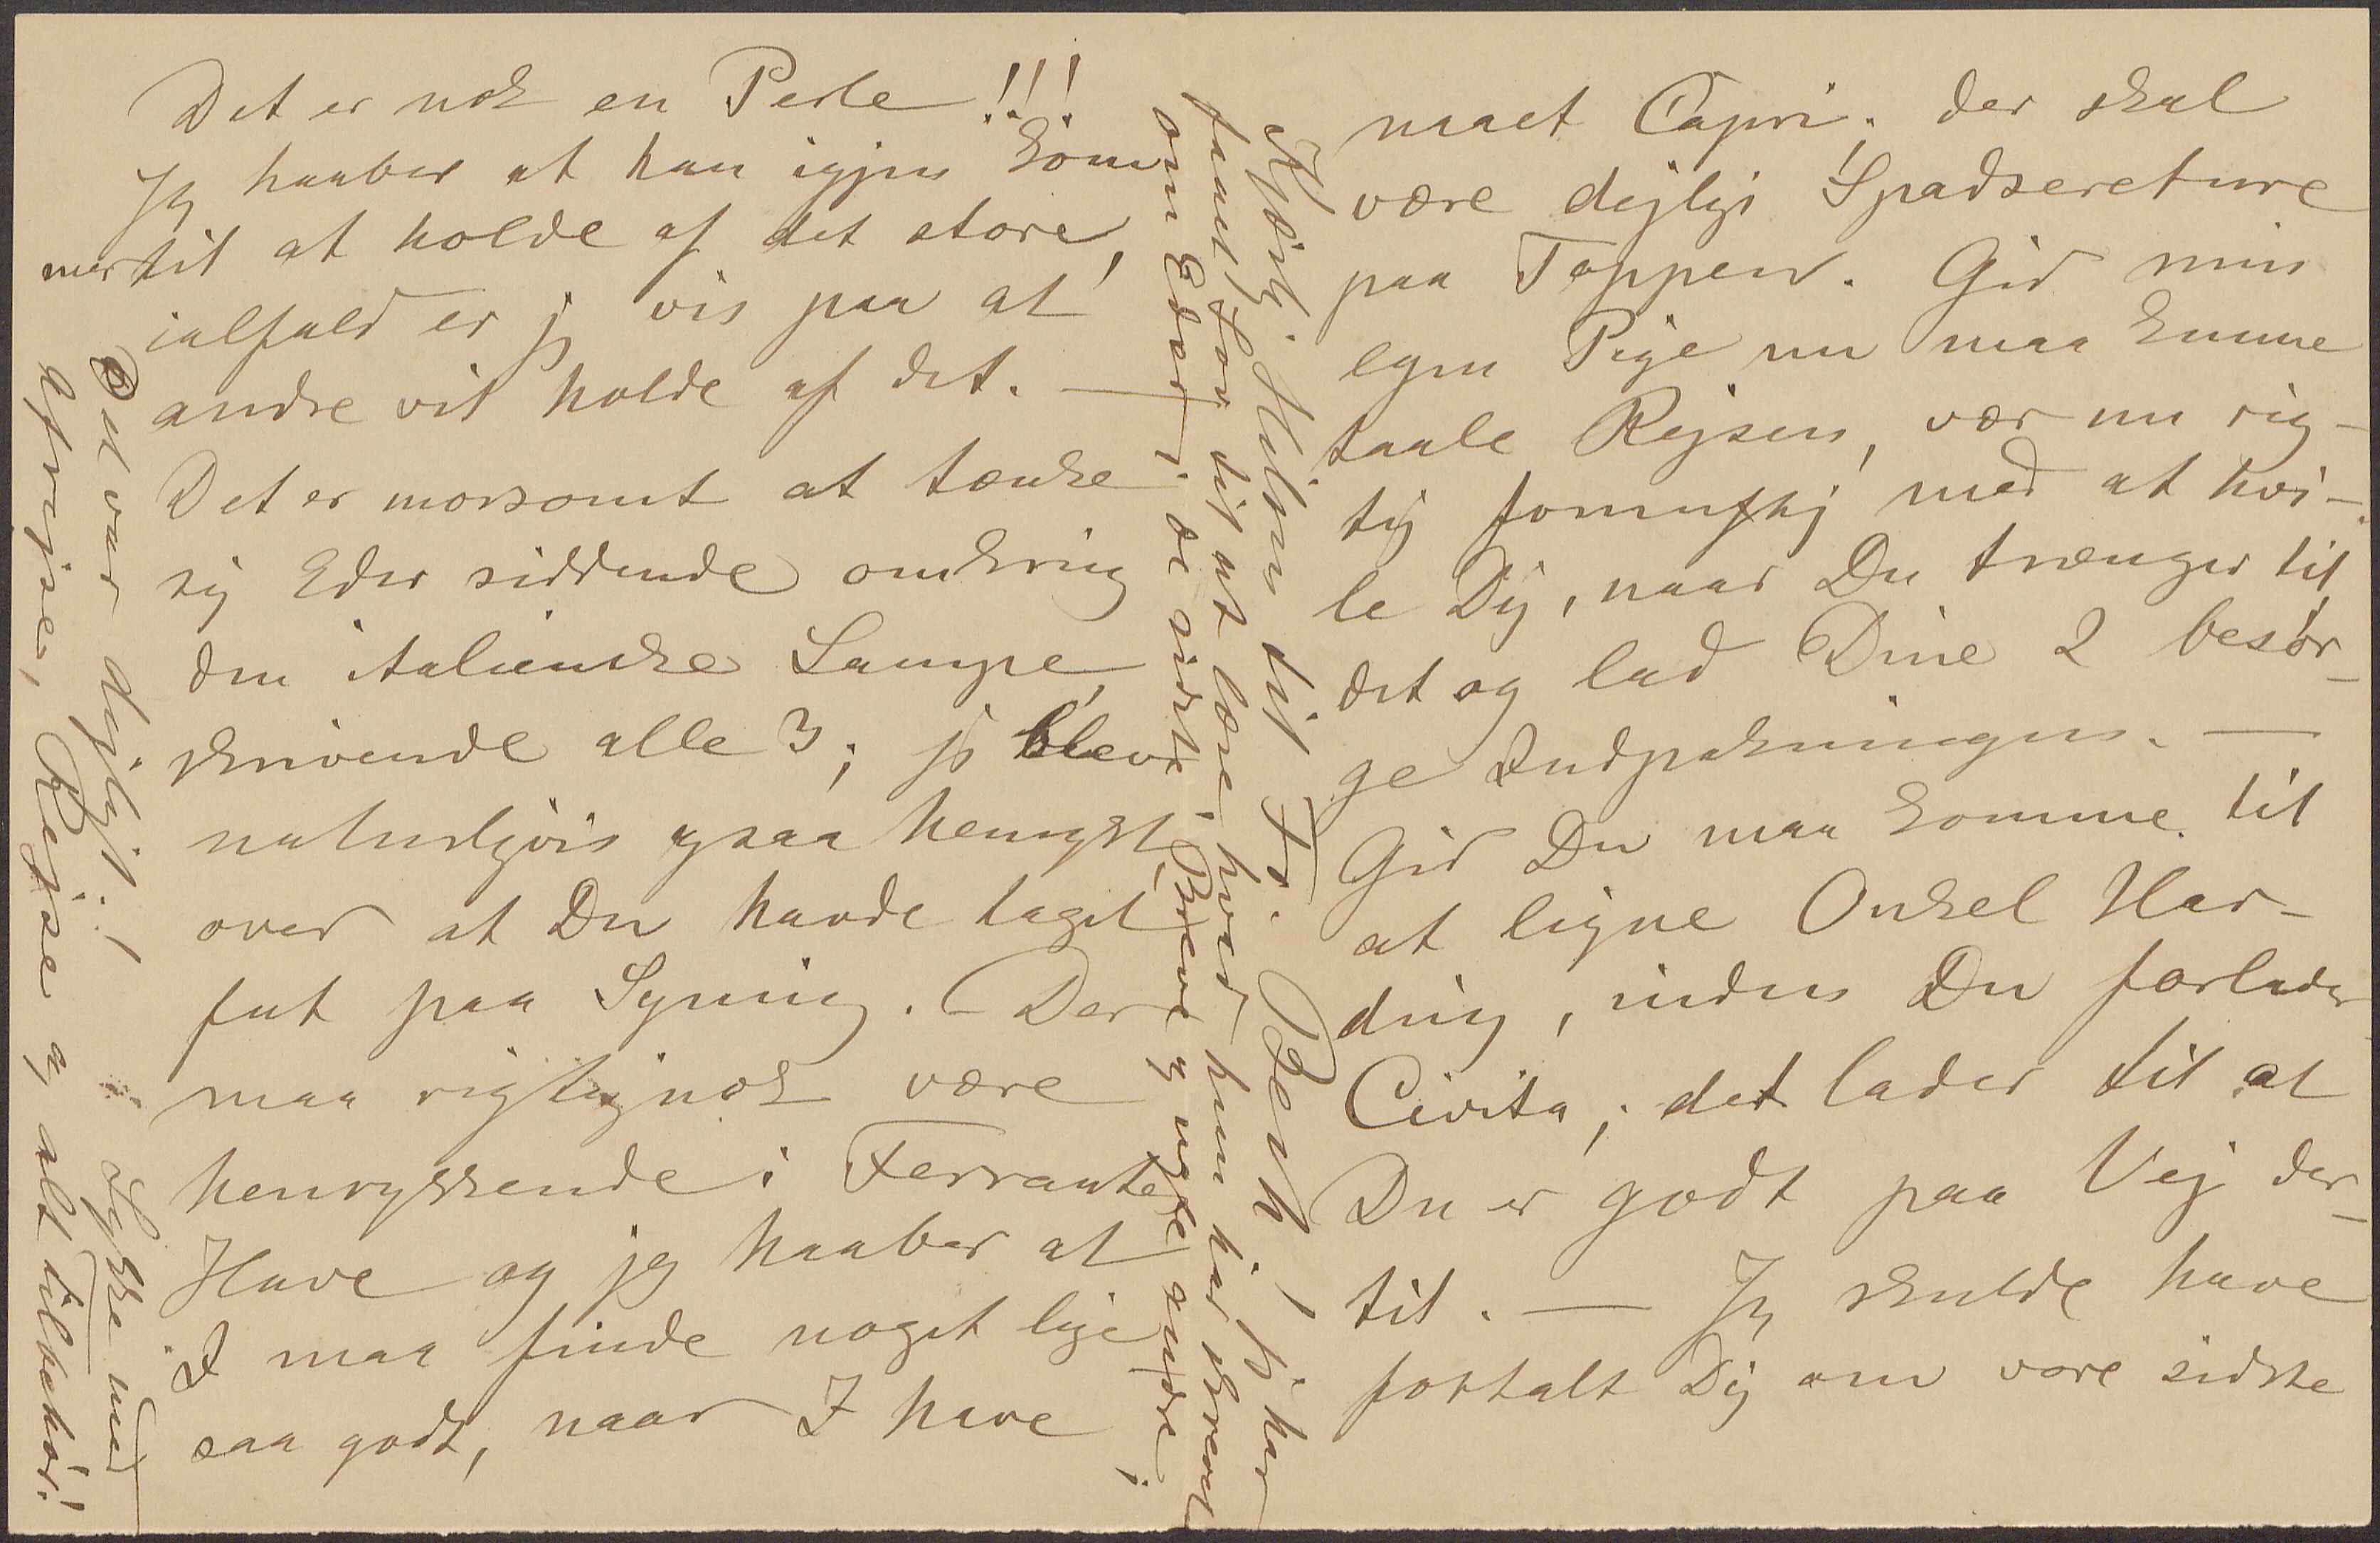 Det er nok en Perle!!!
Jeg haaber at han igjen kom
mer til at holde af det store,
ialfald er jeg vis paa at
andre vil holde af det. —
Det er morsomt at tænke
sig Eder siddende omkring
den italienske Lampe,
skrivende alle 3; jeg blev
naturligvis ogsaa henrykt
over at Du havde taget
fat paa Syning. — Der
maa rigtignok være
henrykkende i Ferrantes
Have og jeg haaber at
I maa finde noget lige
saa godt, naar I have
naaet Capri; der skal
være dejlige Spadsereture
paa Toppen. Gid min
egen Pige nu maa kunne
taale Rejsen, vær nu rig-
tig fornuftig med at hvi-
le Dig, naar Du trænger til
det og lad Dine 2 besør-
ge Indpakningen. —
Gid Du maa komme til
at ligne Onkel Har-
ding, inden Du forlader
Civita; det lader til at
Du er godt paa Vej der-
til. — Jeg skulde have
fortalt Dig om vore sidste
Kjærlig Hilsen til Fr. Benk! jeg har
faaet Lov til at læse, hvad hun har skrevet
om Eder i de sidste Breve og nyde andre;
Det var dejligt! Lykke med
Afrejse, Rejse og alt tilbehør!